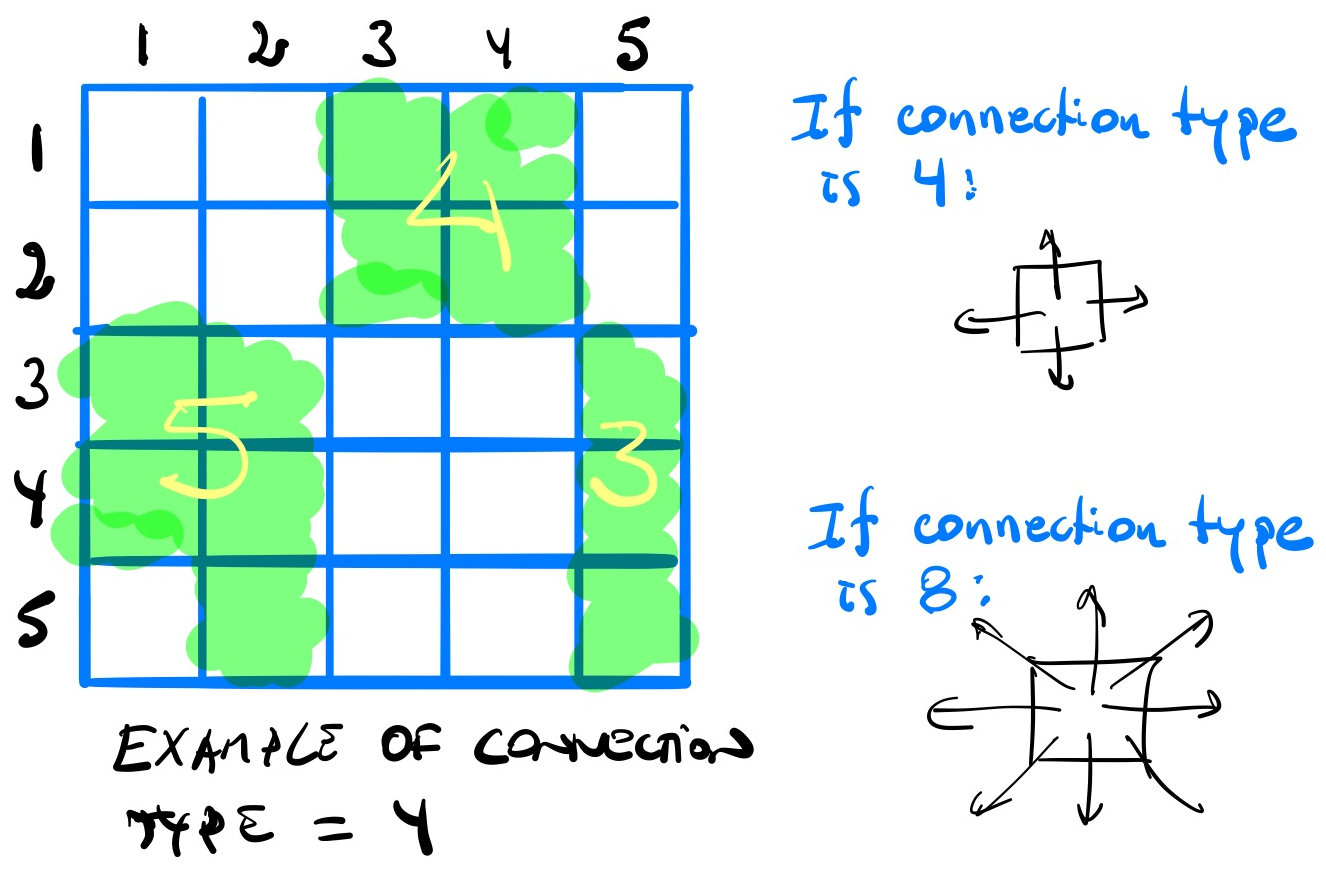 1 2 3 4 5
1
2
3
4
5
4
5
3
EXAMPLE OF CONNECTION
TYPE = 4
If connection type
is 4:
If connection type
is 8: